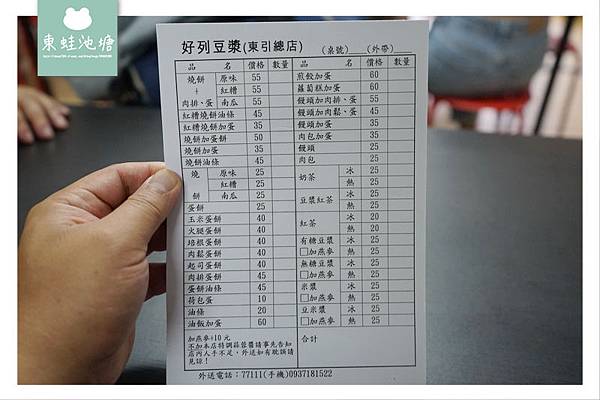 東蛙池塘
好列豆漿(東引總店) (桌號) (外帶)
品 名 價格 數量 品 名 價格 數量
燒餅 原味 55
+ 紅糟 55
肉排、蛋 南瓜 55
紅糟燒餅油條 45
紅糟燒餅加蛋 35
燒餅加蛋餅 50
燒餅加蛋 35
燒餅油條 45
燒 原味 25
紅糟 25
餅 南瓜 25
蛋餅 25
玉米蛋餅 40
火腿蛋餅 40
培根蛋餅 40
肉鬆蛋餅 40
起司蛋餅 40
肉排蛋餅 45
蛋餅油條 45
荷包蛋 10
油條 20
油飯加蛋 60
煎餃加蛋 60
蘿蔔糕加蛋 60
饅頭加肉排、蛋 55
饅頭加肉鬆、蛋 45
饅頭加蛋 35
肉包加蛋 35
饅頭 25
肉包 25
奶茶 冰 25
熱 25
豆漿紅茶 冰 25
熱 25
紅茶 冰 20
熱 20
有糖豆漿 冰 25
□加燕麥 熱 25
無糖豆漿 冰 25
□加燕麥 熱 25
米漿 冰 25
□加燕麥 熱 25
豆米漿 冰 25
□加燕麥 熱 25
加燕麥+10元
不加本店特調蒜蓉醬請事先告知
店內人手不足,外送如有耽誤請
見諒!
合計
外送電話:77111(手機)0937181522